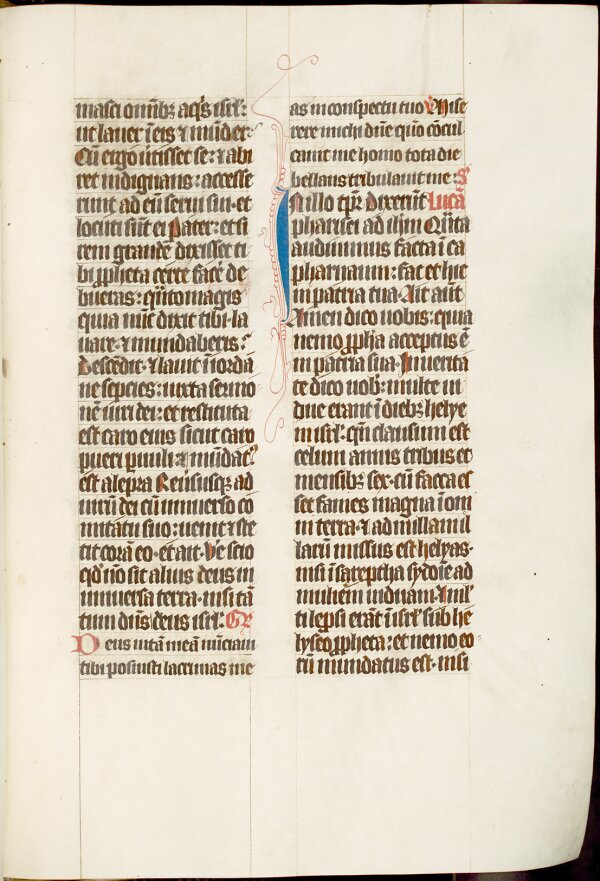 masci omībȝ aq̄s isrl̄:
ut lauer īeis ⁊ mūder⁊
Cū ergo ūtisset se: ⁊ abi
ret indignans: accesse
runt ad eū serui sui· et
locuti sūt ei Pater: et si
rem grandē dixisset ti
bi ꝓpheta certe facē de
bueras: q̄ntomagis
quia nūc dixit tibi· la
uare· ⁊ mundaberis:
Descēdit· ⁊ lauit ī iordā
ne sepcies: iuxta sermo
nē uiri dei: et restituta
est caro eius sicut caro
pueri puuli ⁊ mūdat᷒
est a lepra Reūsusq̄ ad
uirū dei cū uniuerso co
mitatu suo: uenit ⁊ ste
tit corā eo· et ait· Ve scio
qd̄ nō sit alius deus in
uniuersa terra· nisi tā
tum dn̄s deus isrl̄· GR
Deus uitā meā nūciaui
tibi posuisti lacrimas me
as in conspectu tuo V̓ Mise
rere michi dn̄e quō cōcul
cauit me homo tota die
bellans tribulauit me: S
In illo tp̄r Dixerūt Lucā
pharisei ad ih̄m Qūta
audiuimus facta ī ca
pharnaum: fac et hic
in patria tua· Ait aūt
Amen dico uobis: quia
nemo ꝓpha acceptus ē
in patria sua· In uerita
te dico uob᷒: multe ui
due erant ī diebȝ helye
in isrl̄· qn̄ clausum est
celum annis tribus et
mensibȝ sex· cū facta es
set fames magna ī om
ni terra· ⁊ ad nullam il
larū missus est helyas·
nisi ī sareptha sydoīe ad
mulierē uiduam· ⁊ ml̄
ti lepsi erāt ī isrl̄ sub he
lyseo ꝓpheta: et nemo eo
rū mundatus est· nisi